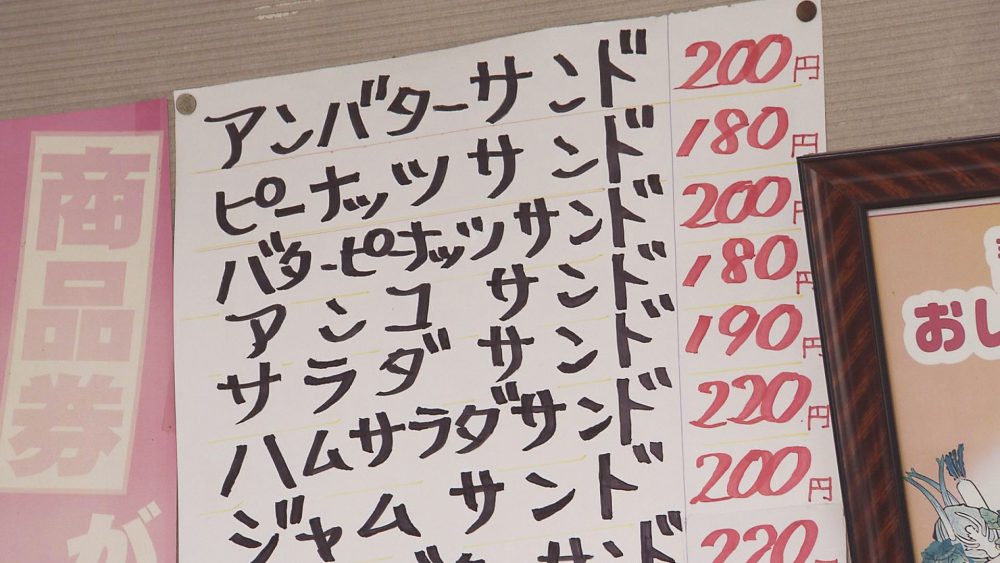 アンバターサンド 200円
ピーナッツサンド 180円
バターピーナッツサンド 200円
アンコサンド 180円
サラダサンド 190円
ハムサラダサンド 220円
ジャムサンド 200円
サンド 220
商品券
が
おし